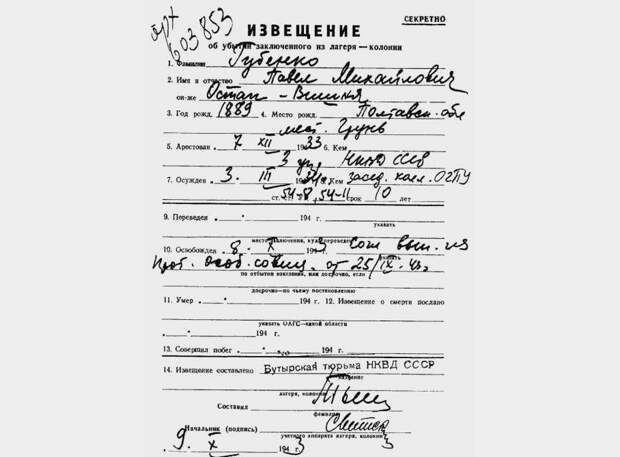 арх
603853
СЕКРЕТНО
ИЗВЕЩЕНИЕ
об убытии заключенного из лагеря — колонии
1. Фамилия Губенко
2. Имя и отчество Павел Михайлович
он-же Остап - Вишня
3. Год рожд. 1889 4. Место рожд. Полтавск. обл
мест. Грунь
5. Арестован " 7 " XII 1933 6. Кем
3 уп. НКВД СССР
7. Осужден " 3 " III 1934 г. Кем засед. колл. ОГПУ
ст. 54-8, 54-11 срок 10 лет
9. Переведен " " 194 г.
указать
место заключения, куда переведен
10. Освобожден " 8 " X 1943 Сог. вып. из
Прот. особ. совещ. от 25/IX-43г
по отбытии наказания, или досрочно, если
досрочно—по чьему постановлению
11. Умер " " 194 г. 12. Извещение о смерти послано
указать ОАГС—какой области
" " 194 г.
13. Совершил побег " " 194 г.
14. Извещение составлено Бутырская тюрьма НКВД СССР
название
лагеря, колонии
Составил
фамилия
Начальник (подпись)
учетного аппарата лагеря, колонии
" 9 " X 1943